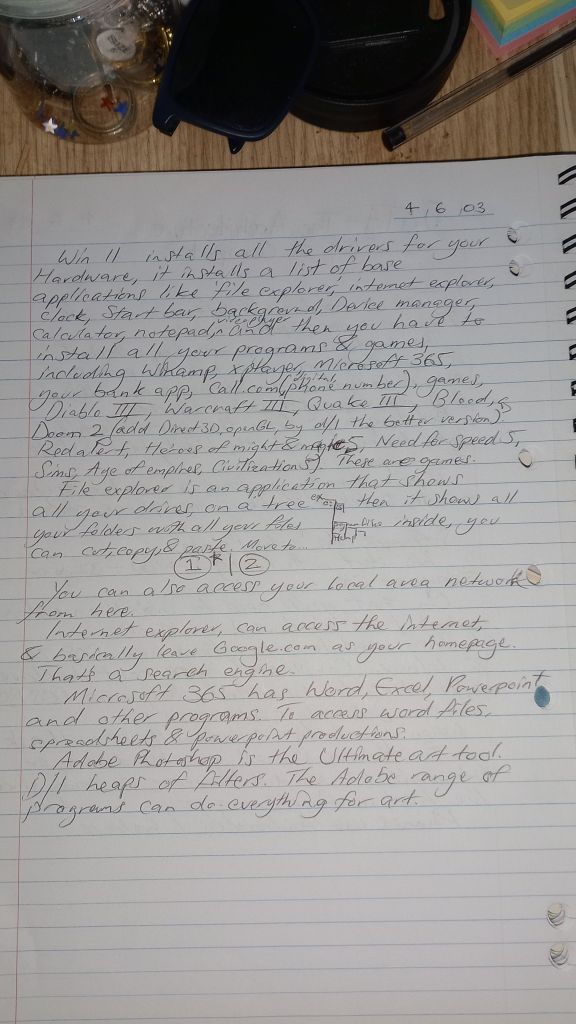 4, 6, 03
Win 11 installs all the drivers for your
Hardware, it installs a list of base
applications like file explorer, internet explorer,
clock, Start bar, background, Device manager,
Calculator, notepad, videoplayer and then you have to
install all your programs & games,
including WinAmp, xplayer, Microsoft 365,
your bank app, Call.com (digital phone number), games,
Diablo III, Warcraft III, Quake III, Blood,
Doom 2 (add Direct3D, openGL, by d/l the better version)
Redalert, Heroes of might & magic 5, Need for speed 5,
Sims, Age of empires, Civilization 5} These are games.
File explorer is an application that shows
all your drives, on a tree ex then it shows all
your folders with all your files inside, you
can cut, copy, & paste. Move to...
1 | 2
You can also access your local area network
from here.
Internet explorer, can access the internet,
& basically leave Google.com as your homepage.
Thats a search engine.
Microsoft 365 has Word, Excel, Powerpoint
and other programs. To access word files,
spreadsheets & powerpoint productions.
Adobe Photoshop is the Ultimate art tool.
D/l heaps of filters. The Adobe range of
programs can do everything for art.